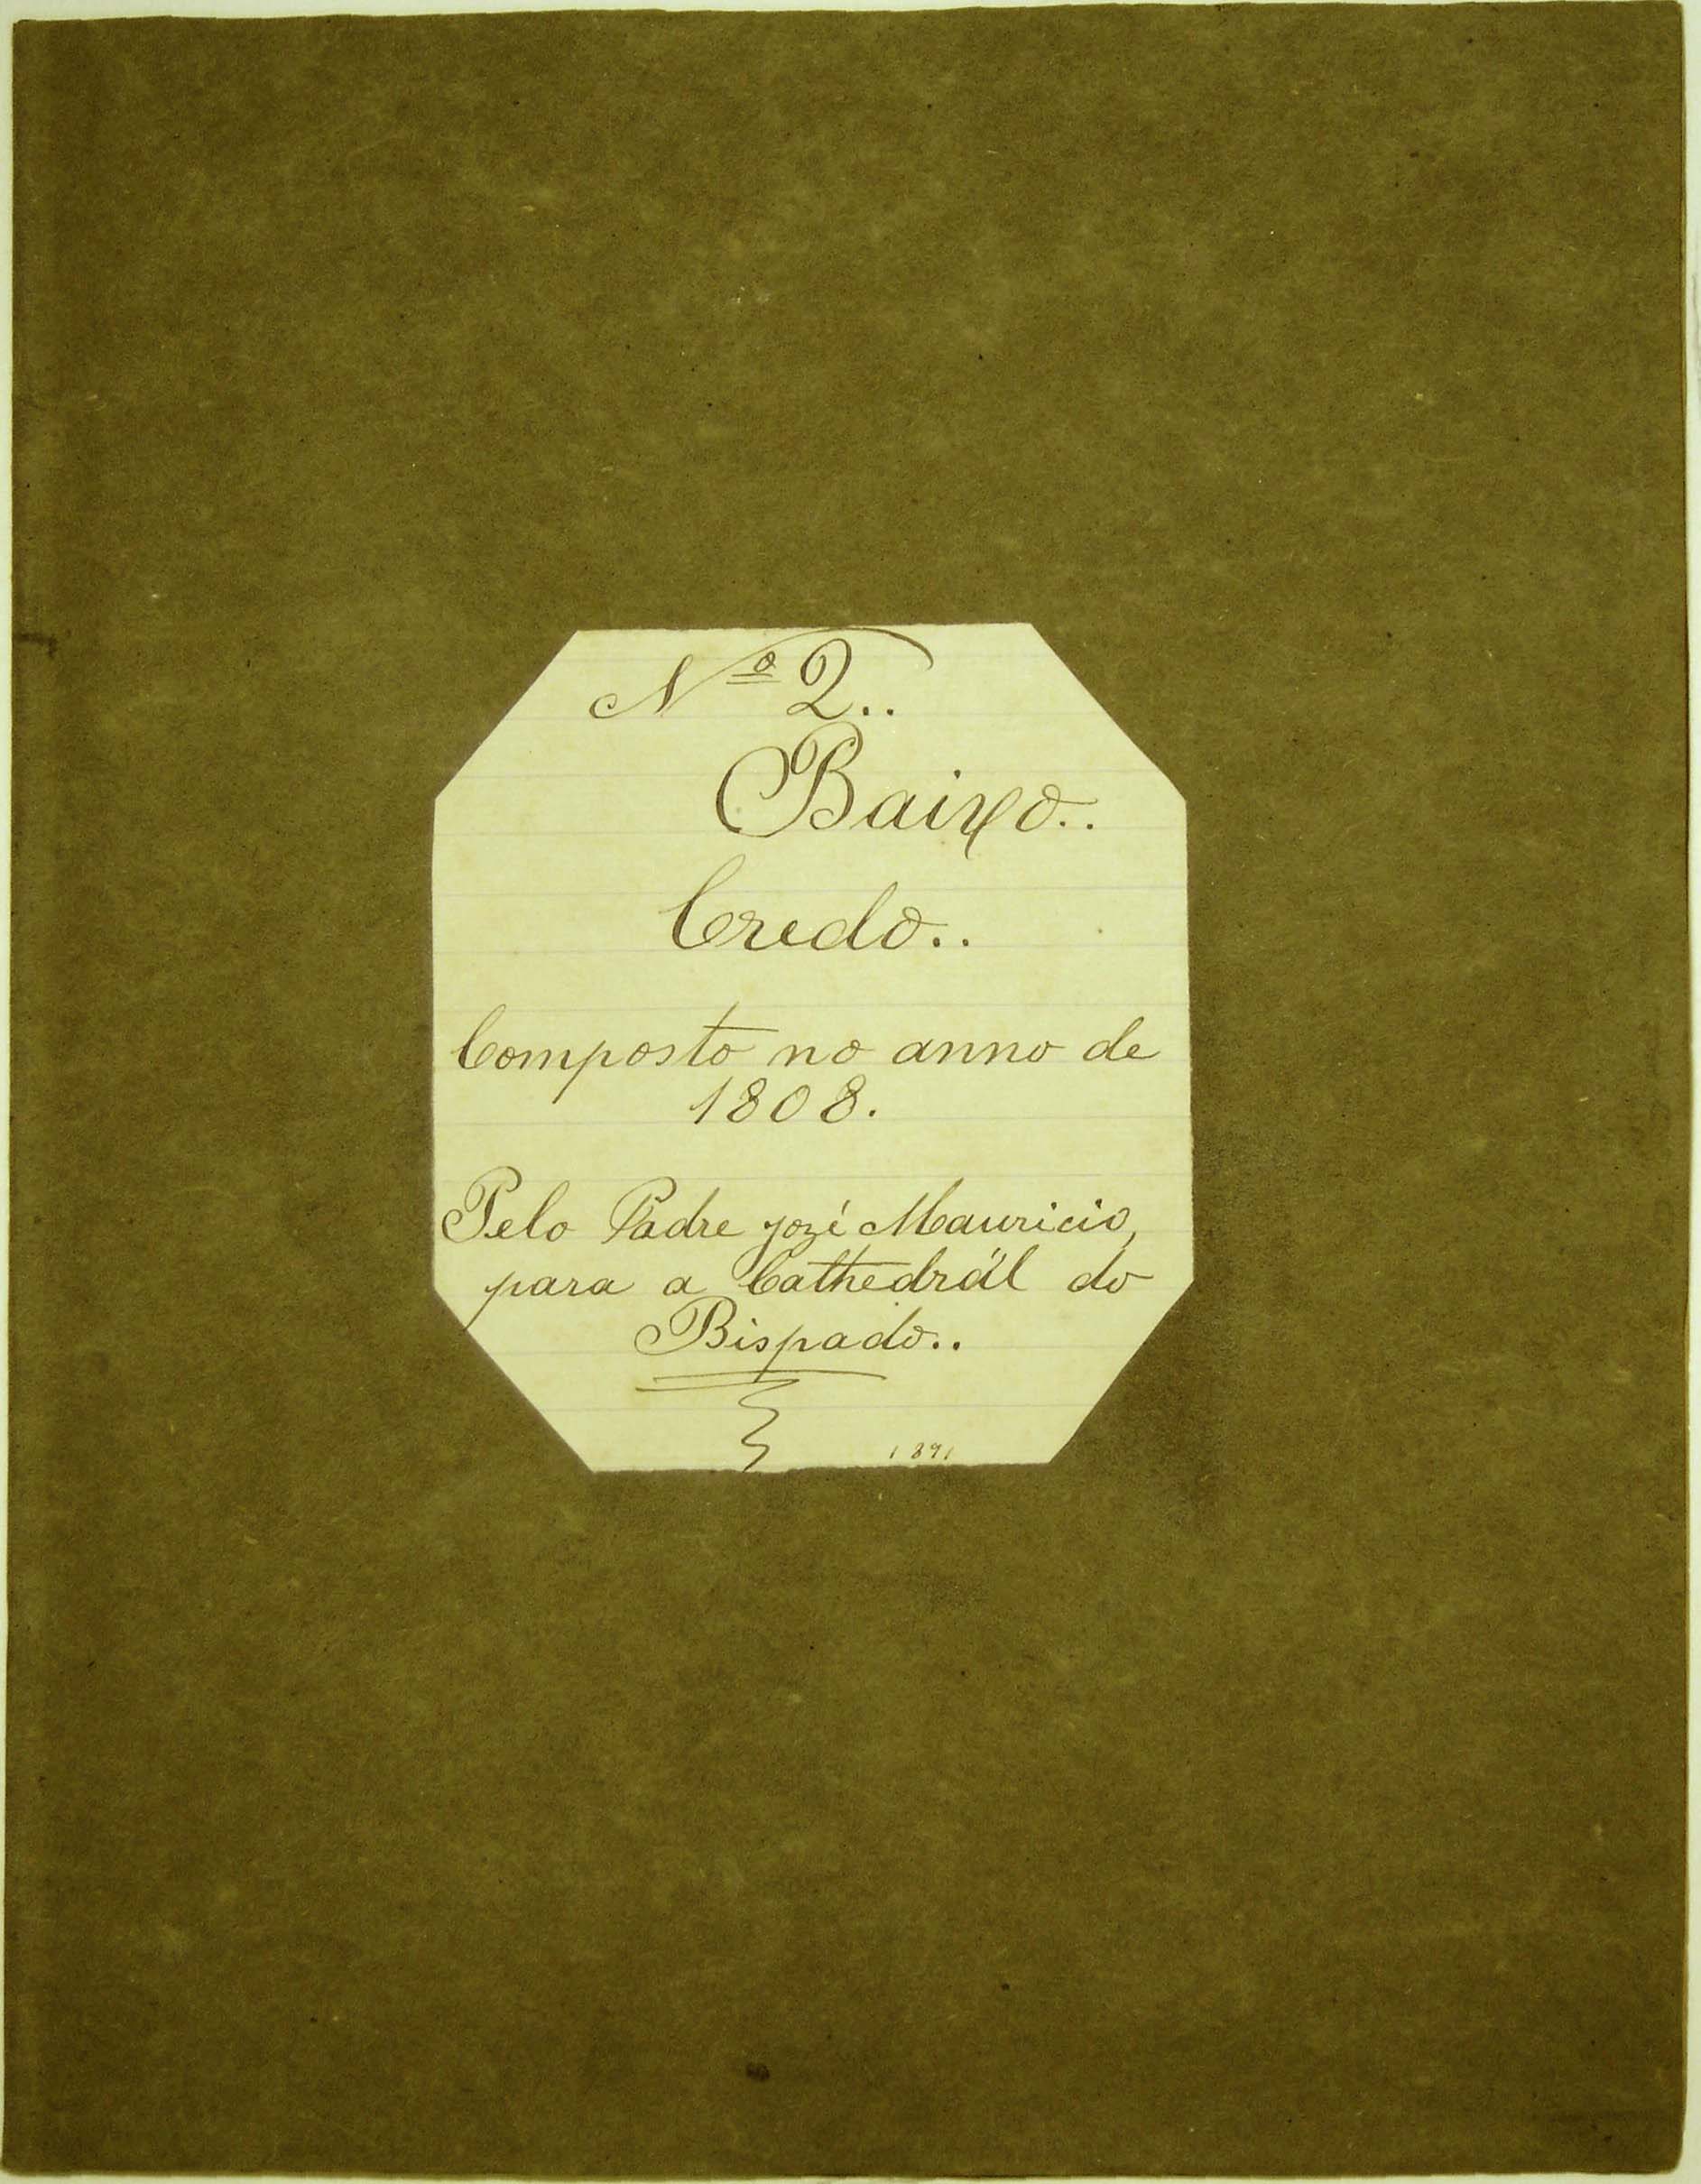 Nº 2..
Baixo..
Credo..
Composto no anno de
1808.
Pelo Padre José Mauricio,
para a Cathedrál do
Bispado..
1891